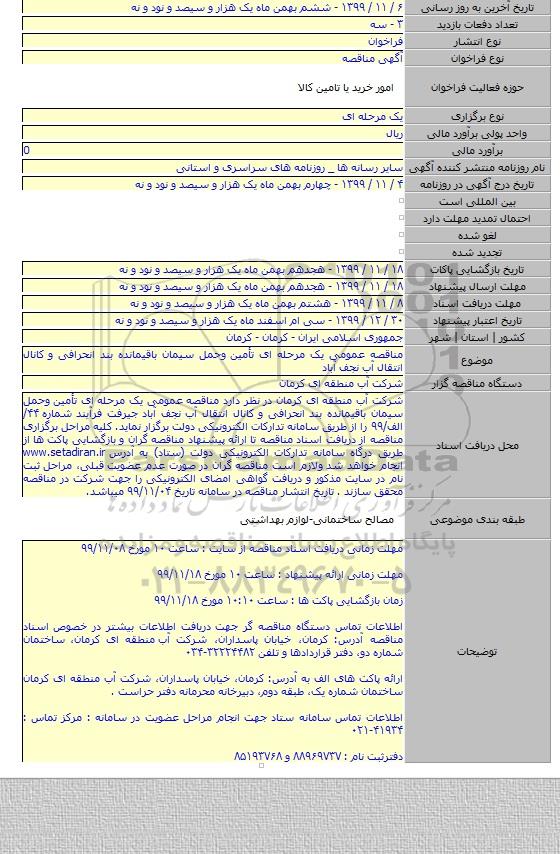 تاریخ آخرین به روز رسانی ۶ / ۱۱ / ۱۳۹۹ - ششم بهمن ماه یک هزار و سیصد و نود و نه
تعداد دفعات بازدید ۳ - سه
نوع انتشار فراخوان
نوع فراخوان آگهی مناقصه
حوزه فعالیت فراخوان امور خرید یا تامین کالا
نوع برگزاری یک مرحله ای
واحد پولی برآورد مالی ریال
برآورد مالی 0
نام روزنامه منتشر کننده آگهی سایر رسانه ها _ روزنامه های سراسری و استانی
تاریخ درج آگهی در روزنامه ۴ / ۱۱ / ۱۳۹۹ - چهارم بهمن ماه یک هزار و سیصد و نود و نه
بین المللی است
احتمال تمدید مهلت دارد
لغو شده
تجدید شده
تاریخ بازگشایی پاکات ۱۸ / ۱۱ / ۱۳۹۹ - هجدهم بهمن ماه یک هزار و سیصد و نود و نه
مهلت ارسال پیشنهاد ۱۸ / ۱۱ / ۱۳۹۹ - هجدهم بهمن ماه یک هزار و سیصد و نود و نه
مهلت دریافت اسناد ۸ / ۱۱ / ۱۳۹۹ - هشتم بهمن ماه یک هزار و سیصد و نود و نه
تاریخ اعتبار پیشنهاد ۳۰ / ۱۲ / ۱۳۹۹ - سی ام اسفند ماه یک هزار و سیصد و نود و نه
کشور | استان | شهر جمهوری اسلامی ایران - کرمان - کرمان
موضوع مناقصه عمومی یک مرحله ای تأمین وحمل سیمان باقیمانده بند انحرافی و کانال
انتقال آب نجف آباد
دستگاه مناقصه گزار شرکت آب منطقه ای کرمان
محل دریافت اسناد شرکت آب منطقه ای کرمان در نظر دارد مناقصه عمومی یک مرحله ای تأمین وحمل
سیمان باقیمانده بند انحرافی و کانال انتقال آب نجف آباد جیرفت فرآیند شماره ۴۴/
الف/۹۹ را از طریق سامانه تدارکات الکترونیکی دولت برگزار نماید. کلیه مراحل برگزاری
مناقصه از دریافت اسناد مناقصه تا ارائه پیشنهاد مناقصه گران و بازگشایی پاکت ها از
طریق درگاه سامانه تدارکات الکترونیکی دولت (ستاد) به آدرس www.setadiran.ir
انجام خواهد شد ولازم است مناقصه گران در صورت عدم عضویت قبلی، مراحل ثبت
نام در سایت مذکور و دریافت گواهی امضای الکترونیکی را جهت شرکت در مناقصه
محقق سازند . تاریخ انتشار مناقصه در سامانه تاریخ ۹۹/۱۱/۰۴ میباشد.
طبقه بندی موضوعی مصالح ساختمانی-لوازم بهداشتی
مهلت زمانی دریافت اسناد مناقصه از سایت : ساعت ۱۰ مورخ ۹۹/۱۱/۰۸
مهلت زمانی ارائه پیشنهاد : ساعت ۱۰ مورخ ۹۹/۱۱/۱۸
زمان بازگشایی پاکت ها : ساعت ۱۰:۱۰ مورخ ۹۹/۱۱/۱۸
اطلاعات تماس دستگاه مناقصه گر جهت دریافت اطلاعات بیشتر در خصوص اسناد
مناقصه آدرس: کرمان، خیابان پاسداران، شرکت آب منطقه ای کرمان، ساختمان
شماره دو، دفتر قراردادها و تلفن ۳۲۲۲۴۴۸۲-۰۳۴
توضیحات
ارائه پاکت های الف به آدرس: کرمان، خیابان پاسداران، شرکت آب منطقه ای کرمان
ساختمان شماره یک، طبقه دوم، دبیرخانه محرمانه دفتر حراست .
اطلاعات تماس سامانه ستاد جهت انجام مراحل عضویت در سامانه : مرکز تماس :
۰۲۱-۴۱۹۳۴
دفترثبت نام : ۸۸۹۶۹۷۳۷ و ۸۵۱۹۳۷۶۸
پایگاه اطلاع رسانی مناقصه و مزایده
۰۲۱-۸۸۳۴۹۶۷۰-۵